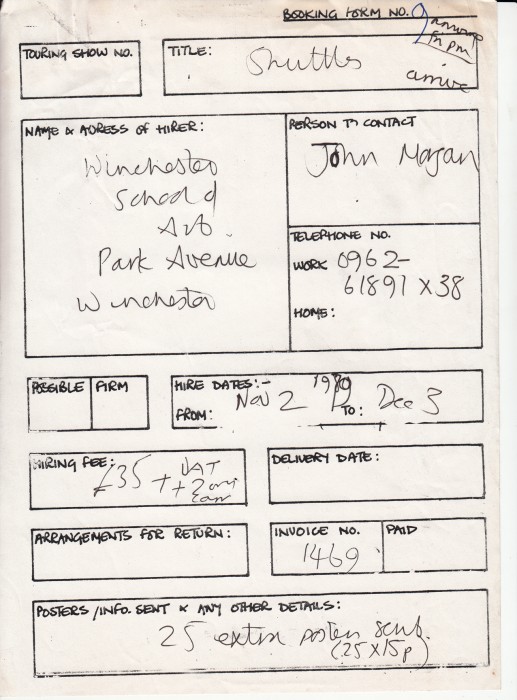 BOOKING FORM NO.
TOURING SHOW NO.
TITLE:
Shuttles
arrive
NAME & ADRESS OF HIRER:
Winchester
School of
Art.
Park Avenue
Winchester
PERSON TO CONTACT
John Morgan
TELEPHONE NO.
WORK 0962-
61891 X 38
HOME:
POSSIBLE FIRM
HIRE DATES:-
1980
FROM: Nov 2 TO: Dec 3
HIRING FEE:
£35 + VAT
+ 2 way
DELIVERY DATE:
ARRANGEMENTS FOR RETURN:
INVOICE NO.
1469
PAID
POSTERS / INFO. SENT & ANY OTHER DETAILS:
25 extra posters sent.
(25 X 15p)